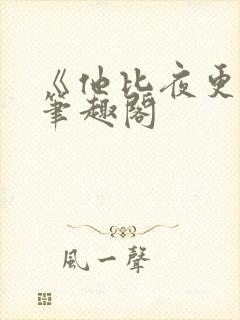 《他比夜更
筆趣閣
風一聲